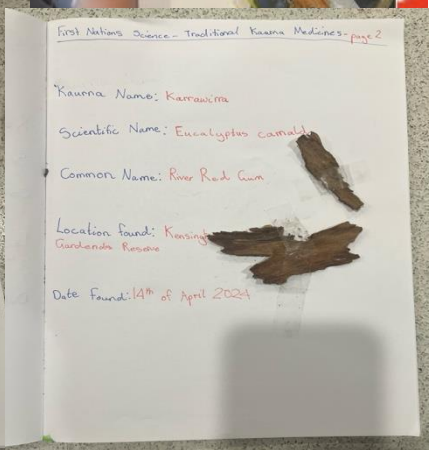 First Nations Science - Traditional Kaurna Medicines - page 2
Kaurna Name: Karrawirra
Scientific Name: Eucalyptus camald
Common Name: River Red Gum
Location found: Kensingt
Gardends Reserve
Date Found: 14th of April 2024